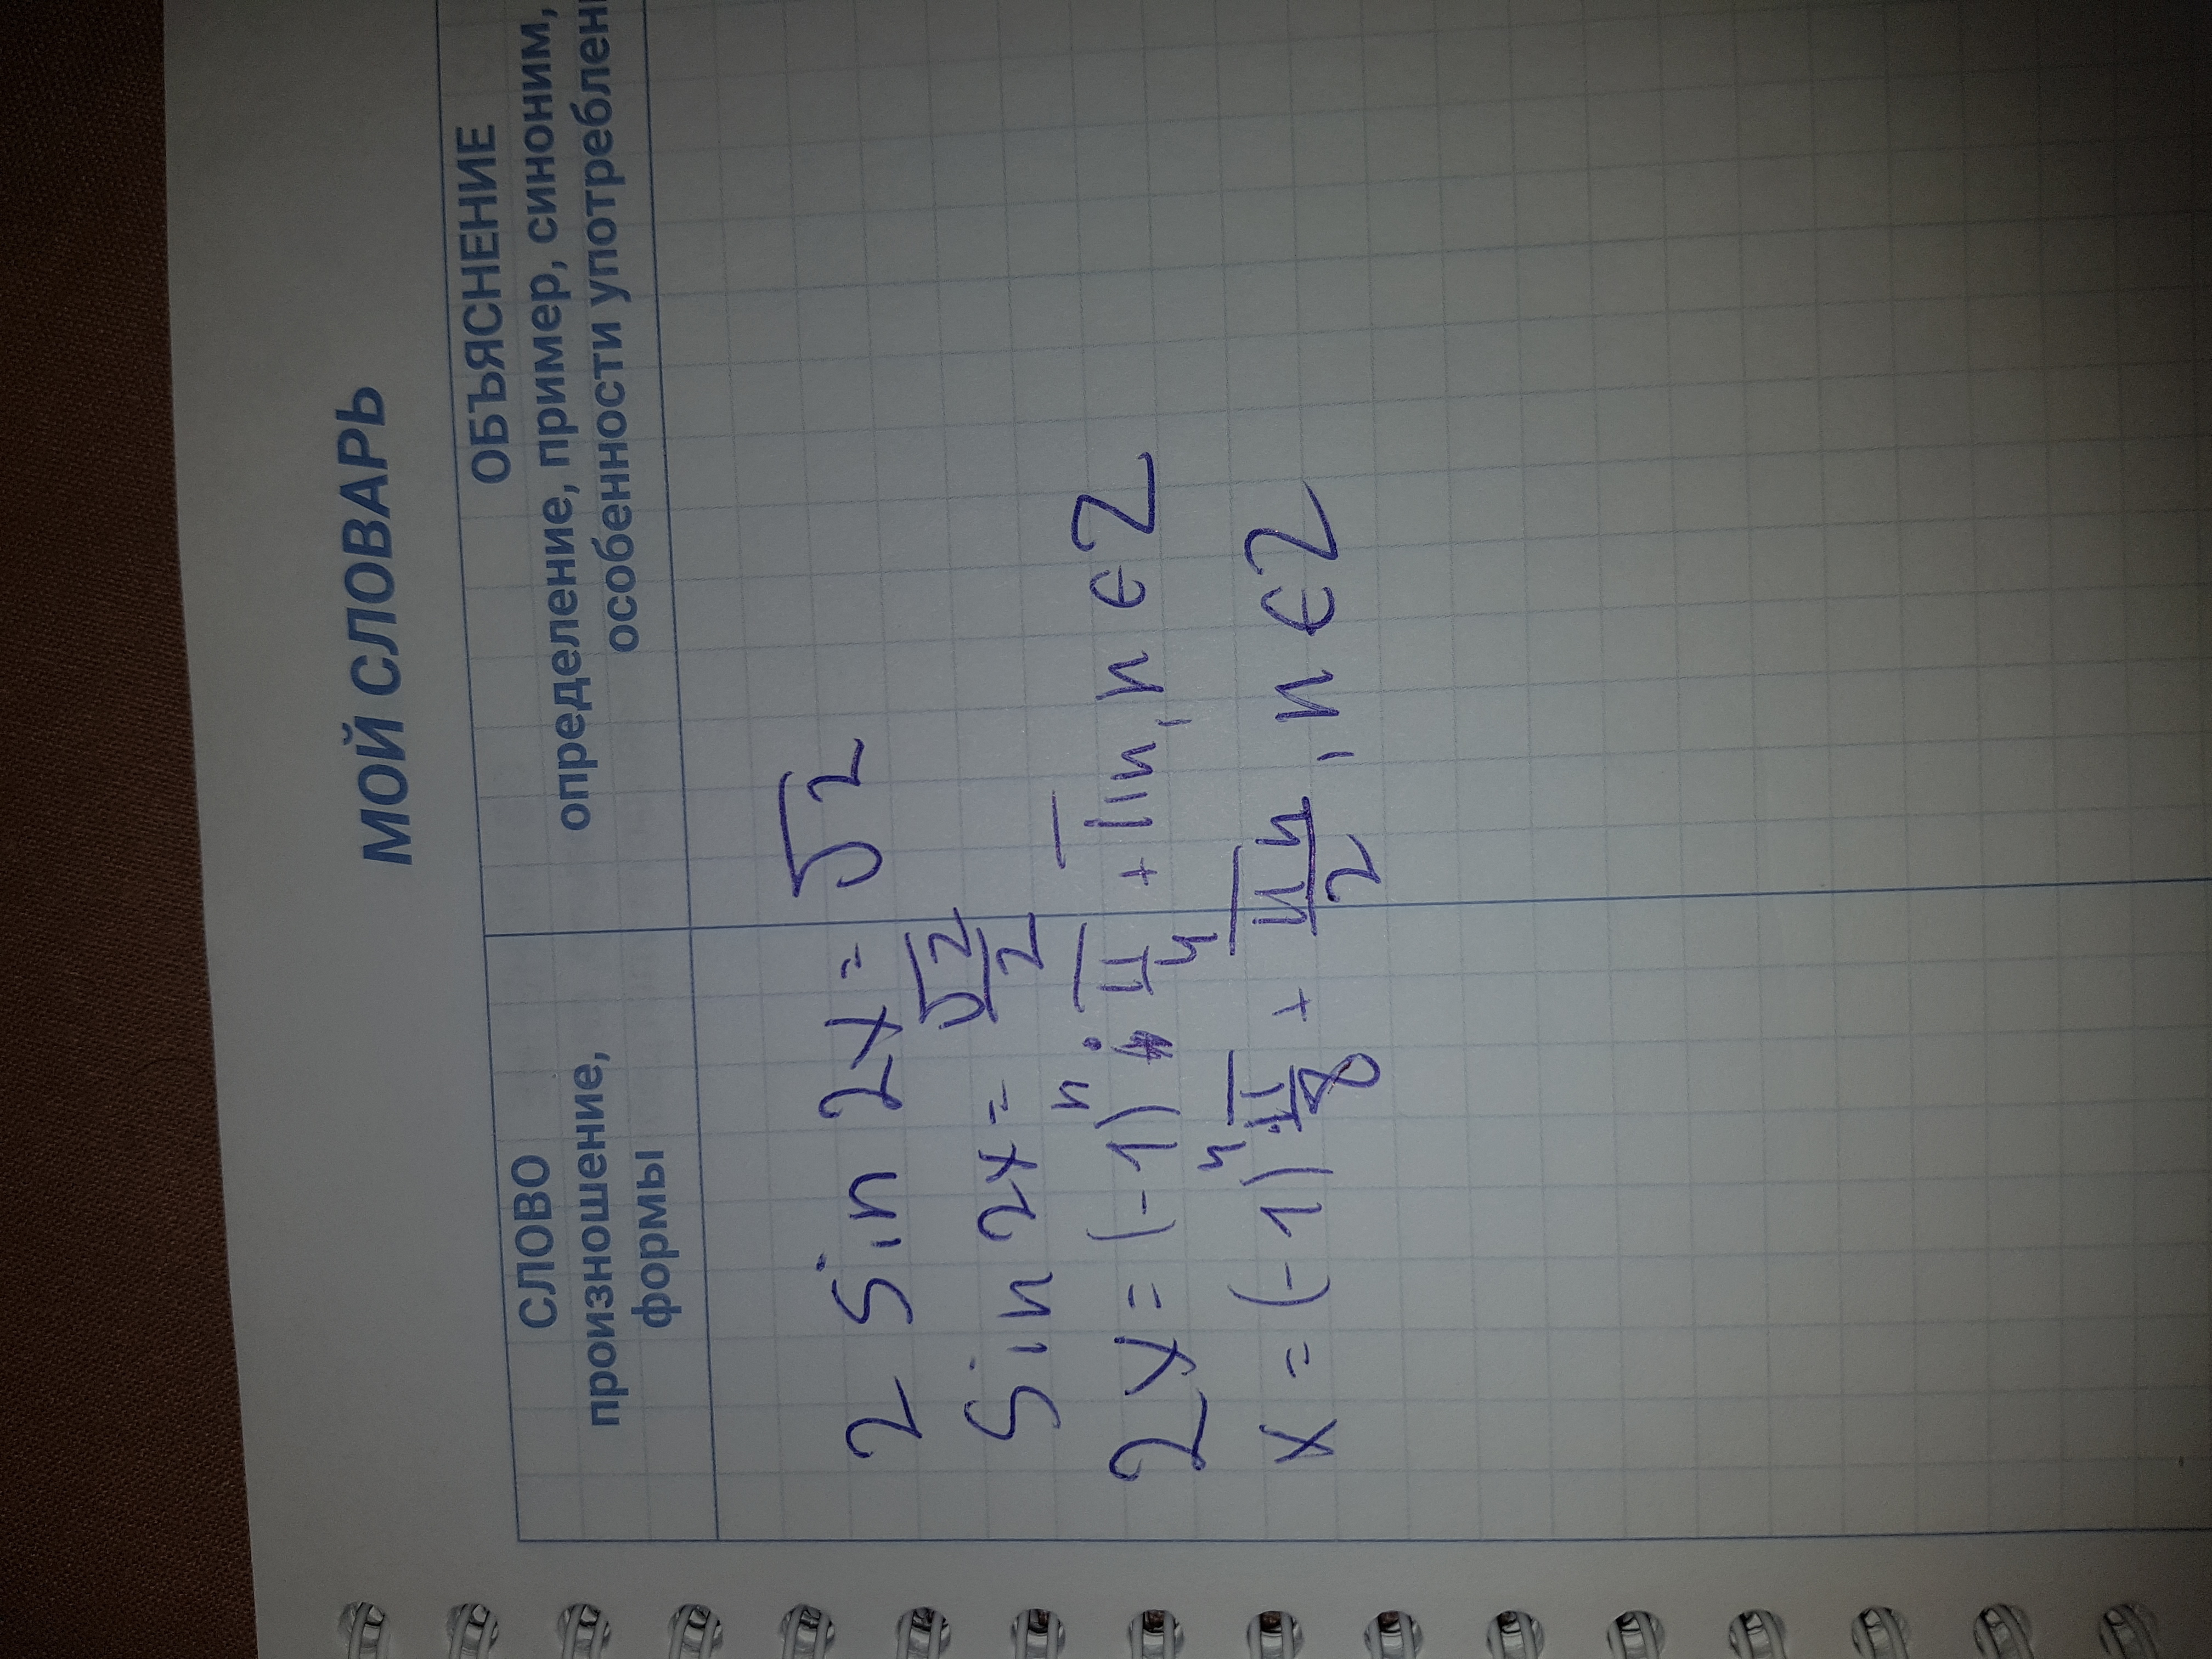 МОЙ СЛОВАРЬ
СЛОВО
произношение,
формы
ОБЪЯСНЕНИЕ
определение, пример, синоним,
особенности употреблен
2 sin 2x = √2
sin 2x = √2/2
2x = (-1)ⁿ · π/4 + πn, n ∈ Z
x = (-1)ⁿ · π/8 + πn/2, n ∈ Z